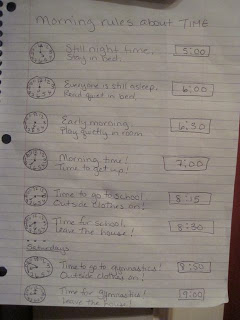 Morning rules about TIME
Still night time,
Stay in bed.
5:00
Everyone is still asleep,
Read quiet in bed.
6:00
Early morning.
Play quietly in room.
6:30
Morning time!
Time to get up!
7:00
Time to go to school
Outside clothes on!
8:15
Time for school,
Leave the house!
8:30
Saturdays
Time to go to gymnastics!
Outside clothes on!
8:50
Time for gymnastics!
Leave the house!
9:00